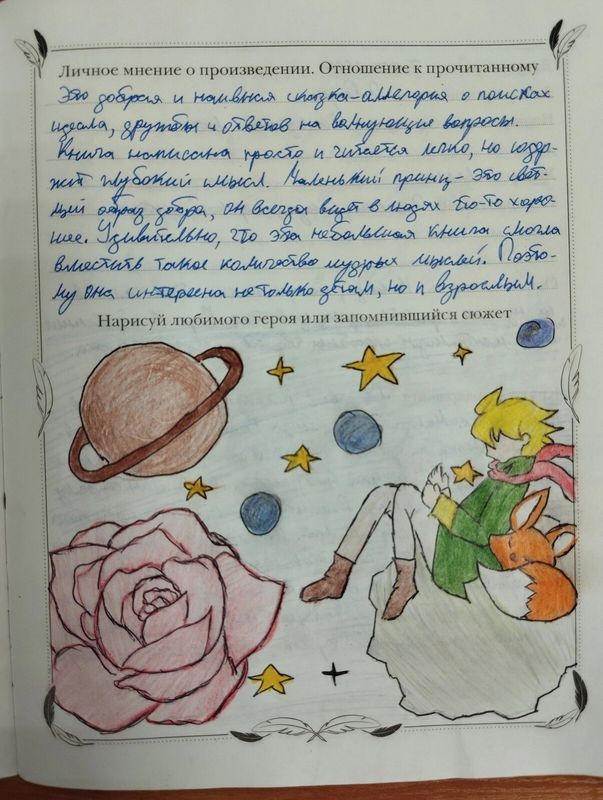 Личное мнение о произведении. Отношение к прочитанному
Это добрая и наивная сказка-аллегория о поисках
идеала, дружбы и ответов на волнующие вопросы.
Книга написана просто и читается легко, но содер-
жит глубокий смысл. Маленький принц - это свет-
лый образ добра, он всегда видит в людях что-то хоро-
шее. Удивительно, что эта небольшая книга смогла
вместить такое количество мудрых мыслей. Поэто-
му она интересна не только детям, но и взрослым.
Нарисуй любимого героя или запомнившийся сюжет